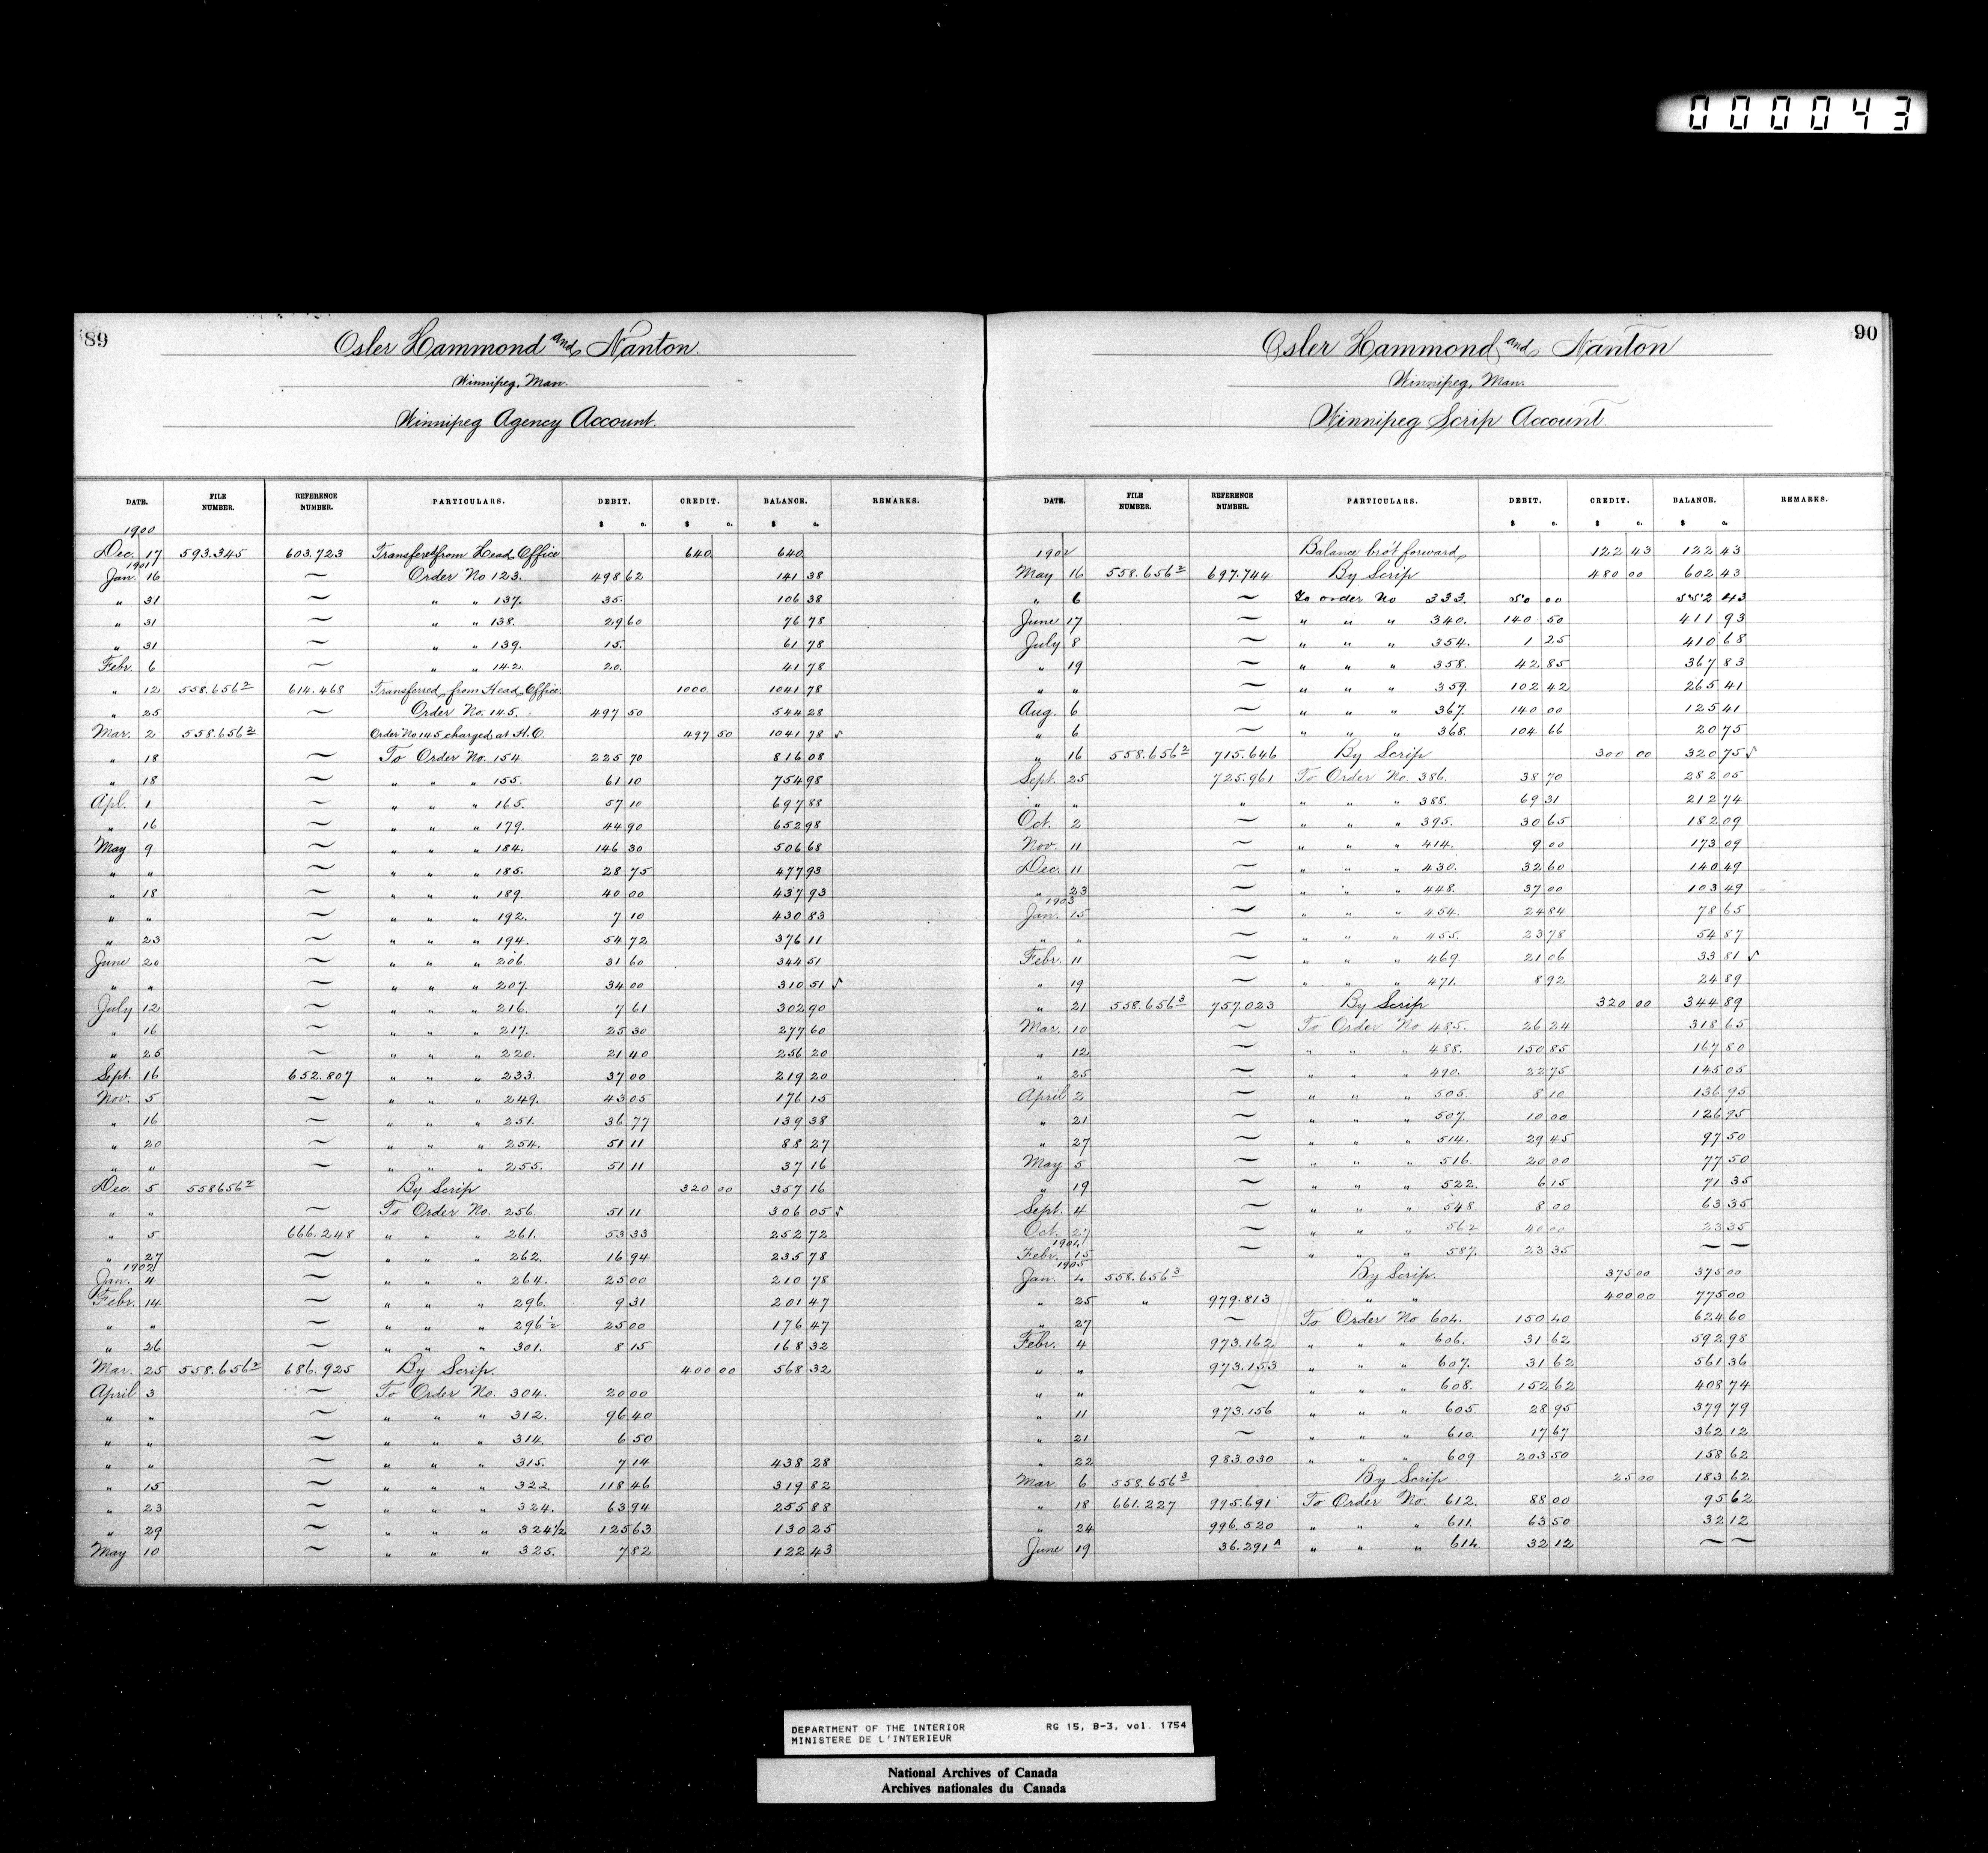 000043
89
Osler Hammond and Nanton.
Winnipeg, Man.
Winnipeg Agency Account.
DATE. FILE NUMBER. REFERENCE NUMBER. PARTICULARS. DEBIT. CREDIT. BALANCE. REMARKS.
$ c. $ c. $ c.
1900
Dec. 17 593.345 603.723 Transfered from Head Office 640. 640.
1901
Jan. 16 ~ Order No 123. 498 62 141 38
" 31 ~ " " 137. 35. 106 38
" 31 ~ " " 138. 29 60 76 78
" 31 ~ " " 139. 15. 61 78
Febr. 6 ~ " " 142. 20. 41 78
" 12 558.656² 614.468 Transferred from Head Office. 1000. 1041 78
" 25 ~ Order No. 145. 497 50 544 28
Mar. 2 558.656² Order No 145 charged at H.O. 497 50 1041 78 ✓
" 18 ~ To Order No. 154 225 70 816 08
" 18 ~ " " " 155. 61 10 754 98
Apl. 1 ~ " " " 165. 57 10 697 88
" 16 ~ " " " 179. 44 90 652 98
May 9 ~ " " " 184. 146 30 506 68
" " ~ " " " 185. 28 75 477 93
" 18 ~ " " " 189. 40 00 437 93
" " ~ " " " 192. 7 10 430 83
" 23 ~ " " " 194. 54 72 376 11
June 20 ~ " " " 206 31 60 344 51
" " ~ " " " 207. 34 00 310 51 ✓
July 12 ~ " " " 216. 7 61 302 90
" 16 ~ " " " 217. 25 30 277 60
" 25 ~ " " " 220. 21 40 256 20
Sept. 16 652.807 " " " 233. 37 00 219 20
Nov. 5 ~ " " " 249. 43 05 176 15
" 16 ~ " " " 251. 36 77 139 38
" 20 ~ " " " 254. 51 11 88 27
" " ~ " " " 255. 51 11 37 16
Dec. 5 558656² By Scrip 320 00 357 16
" " ~ To Order No. 256. 51 11 306 05 ✓
" 5 666.248 " " " 261. 53 33 252 72
" 27 ~ " " " 262. 16 94 235 78
1902
Jan. 4 ~ " " " 264. 25 00 210 78
Febr. 14 ~ " " " 296. 9 31 201 47
" " ~ " " " 296½ 25 00 176 47
" 26 ~ " " " 301. 8 15 168 32
Mar. 25 558.656² 686.925 By Scrip. 400 00 568 32
April 3 ~ To Order No. 304. 20 00
" " ~ " " " 312. 96 40
" " ~ " " " 314. 6 50
" " ~ " " " 315. 7 14 438 28
" 15 ~ " " " 322 118 46 319 82
" 23 ~ " " " 324. 63 94 255 88
" 29 ~ " " " 324½ 125 63 130 25
May 10 ~ " " " 325. 7 82 122 43
90
Osler Hammond and Nanton
Winnipeg, Man.
Winnipeg Scrip Account.
DATE. FILE NUMBER. REFERENCE NUMBER. PARTICULARS. DEBIT. CREDIT. BALANCE. REMARKS.
$ c. $ c. $ c.
1902 Balance bro't forward 122 43 122 43
May 16 558.656² 697.744 By Scrip 480 00 602 43
" 6 ~ To order No 333. 50 00 552 43
June 17 ~ " " " 340. 140 50 411 93
July 8 ~ " " " 354. 1 25 410 68
" 19 ~ " " " 358. 42 85 367 83
" " ~ " " " 359. 102 42 265 41
Aug. 6 ~ " " " 367. 140 00 125 41
" 6 ~ " " " 368. 104 66 20 75
" 16 558.656² 715.646 By Scrip 300 00 320 75 ✓
Sept. 25 725.961 To Order No. 386. 38 70 282 05
" " " " " " 388. 69 31 212 74
Oct. 2 ~ " " " 395. 30 65 182 09
Nov. 11 ~ " " " 414. 9 00 173 09
Dec. 11 ~ " " " 430. 32 60 140 49
" 23 ~ " " " 448. 37 00 103 49
1903
Jan. 15 ~ " " " 454. 24 84 78 65
" " ~ " " " 455. 23 78 54 87
Febr. 11 ~ " " " 469. 21 06 33 81 ✓
" 19 ~ " " " 471. 8 92 24 89
" 21 558.656³ 757.023 By Scrip 320 00 344 89
Mar. 10 ~ To Order No 485. 26 24 318 65
" 12 ~ " " " 488. 150 85 167 80
" 25 ~ " " " 490. 22 75 145 05
April 2 ~ " " " 505. 8 10 136 95
" 21 ~ " " " 507. 10 00 126 95
" 27 ~ " " " 514. 29 45 97 50
May 5 ~ " " " 516. 20 00 77 50
" 19 ~ " " " 522. 6 15 71 35
Sept. 4 ~ " " " 548. 8 00 63 35
Oct. 27 ~ " " " 562. 40 00 23 35
1904
Febr. 15 ~ " " " 587. 23 35 ~ ~
1905
Jan. 4 558.656³ By Scrip. 375 00 375 00
" 25 " 979.813 " " 400 00 775 00
" 27 ~ To Order No 604. 150 40 624 60
Febr. 4 973.162 " " " 606. 31 62 592 98
" " 973.153 " " " 607. 31 62 561 36
" " ~ " " " 608. 152 62 408 74
" 11 973.156 " " " 605. 28 95 379 79
" 21 ~ " " " 610. 17 67 362 12
" 22 983.030 " " " 609 203 50 158 62
Mar. 6 558.656³ By Scrip 25 00 183 62
" 18 661.227 995.691 To Order No. 612. 88 00 95 62
" 24 996.520 " " " 611. 63 50 32 12
June 19 36.291A " " " 614. 32 12 ~ ~
DEPARTMENT OF THE INTERIOR RG 15, B-3, vol. 1754
MINISTERE DE L'INTERIEUR
National Archives of Canada
Archives nationales du Canada